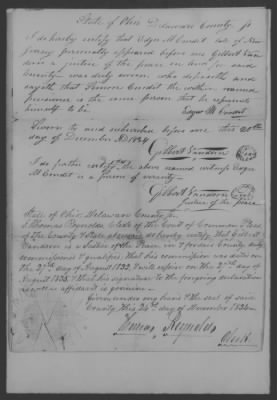 State of Ohio Delaware County, ss
I do hereby certify that Edgar M Condit of New
Jersey personally appeared before me Gilbert Van
dorn a justice of the peace in and for said
County was duly sworn who deposeth and
sayeth that Simon Condit the within named
pensioner is the same person that he represents
himself to be
Edgar M Condit
Sworn to and subscribed before me this 20th
day of December AD 1834
Gilbert Vandorn
I do further certify the above named witness Edgar
M Condit is a person of veracity
Gilbert Vandorn
justice of the peace
State of Ohio, Delaware County, ss
I Thomas Reynolds Clerk of the Court of Common Pleas
of the County & State aforesaid do hereby certify that Gilbert
Vandorn is a Justice of the Peace in & for said County duly
commissioned & qualified, that his commission was dated on
the 27th day of August 1832, & will expire on the 27th day of
August 1835, & that his signature to the foregoing declaration
as well as affidavit is genuine
Given under my hand & the seal of said
County this 24th day of November 1834
Thomas Reynolds
Clerk